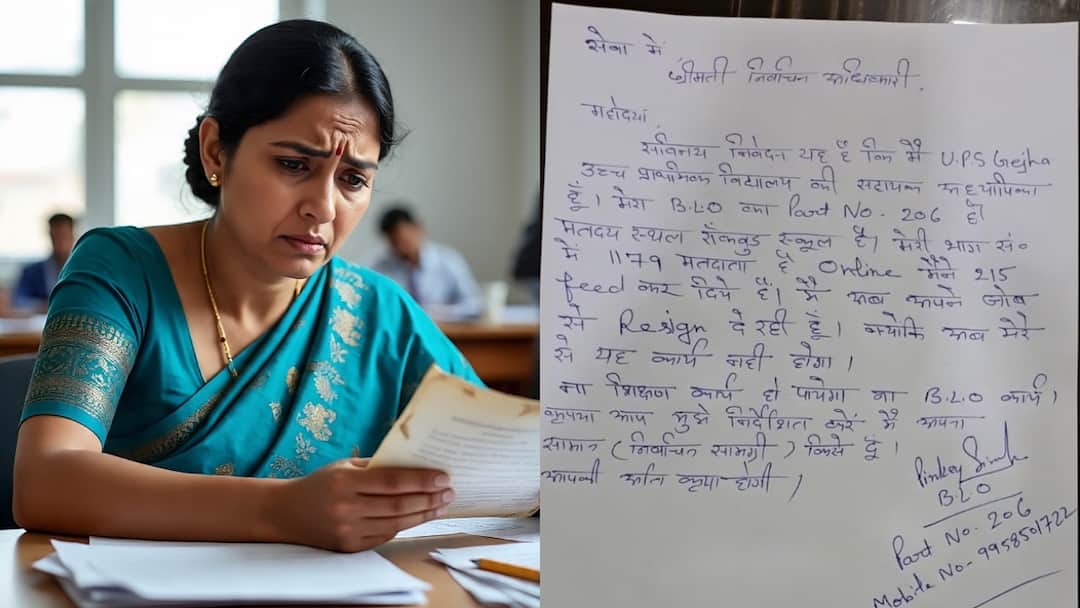 सेवा में
श्रीमती निर्वाचन अधिकारी.
महोदया
सविनय निवेदन यह है कि मैं U.P.S Gejha
उच्च प्राथमिक विद्यालय की सहायक अध्यापिका
हूँ। मेरा B.L.O का Part No. 206 है।
मतदेय स्थल रॉकवुड स्कूल है। मेरी भाग सं०
में 1179 मतदाता है Online मैंने 215
feed कर दिये हैं। मैं अब अपने जॉब
से Resign दे रही हूँ। क्योकि अब मेरे
से यह कार्य नही होगा।
ना शिक्षण कार्य हो पायेगा ना B.L.O कार्य।
कृपया आप मुझे निर्देशित करें मैं अपना
सामान (निर्वाचन सामग्री) किसे दूँ।
आपकी अति कृपा होगी।
Pinkey Singh
B.L.O
Part No. 206
Mobile No- 9958501722